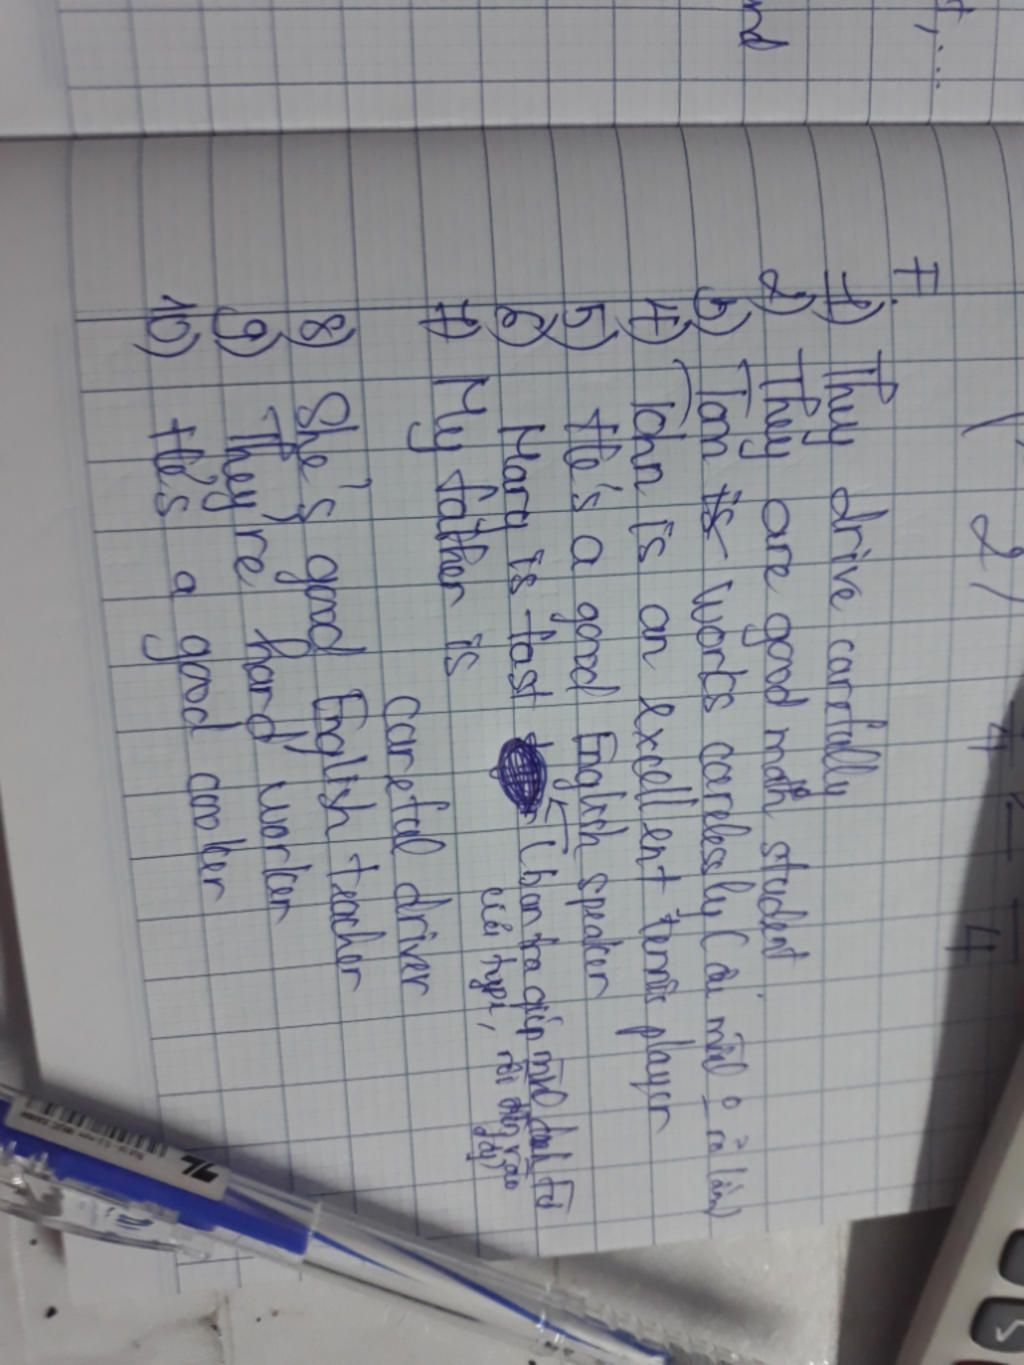 nd
t, ...
I.
1) They drive carefully
2) They are good math student
3) Tom is works careless ly (cái
4) John is an excellent tennis player
5) He's a good English speaker
6) Mara is fast (bạn tra giúp mình danh từ
của type, rồi điền vào
đây)
7) My father is
careful driver
8) She's good English teacher
9) They're hard worker
10) He's a good cooker